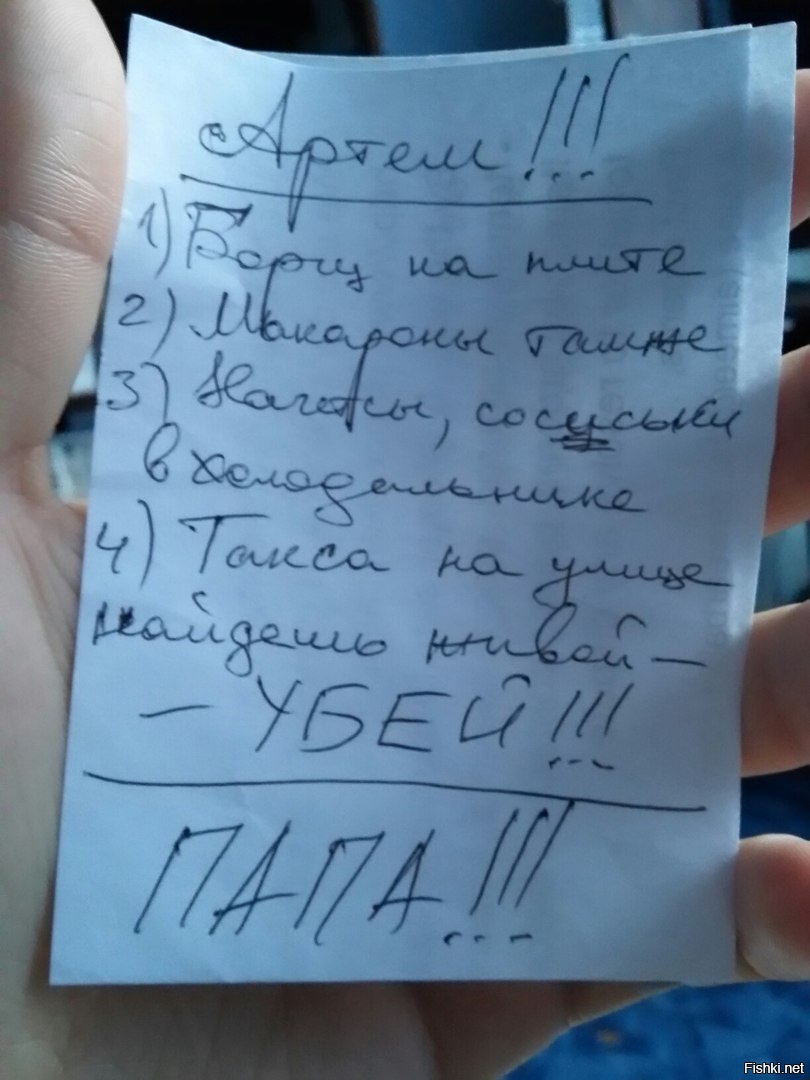 Артем!!!
1) Борщ на плите
2) Макароны там же
3) Нагетсы, сосиськи
в холодельнике
4) Такса на улице
найдешь живой —
— УБЕЙ!!!
ПАПА!!!
Fishki.net